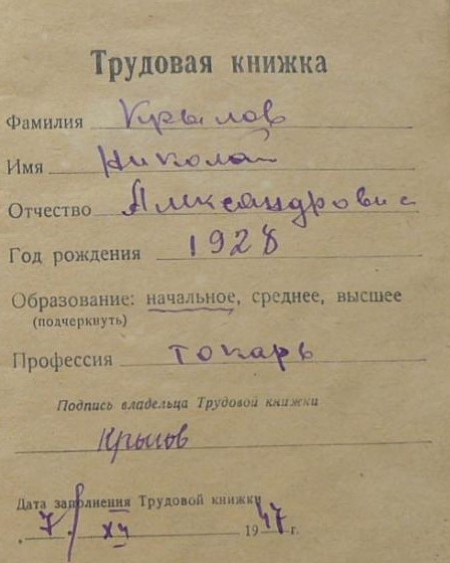 Трудовая книжка
Фамилия Крылов
Имя Николай
Отчество Александрович
Год рождения 1928
Образование: начальное, среднее, высшее
(подчеркнуть)
Профессия токарь
Подпись владельца Трудовой книжки
Крылов
Дата заполнения Трудовой книжки
7 1947 г.